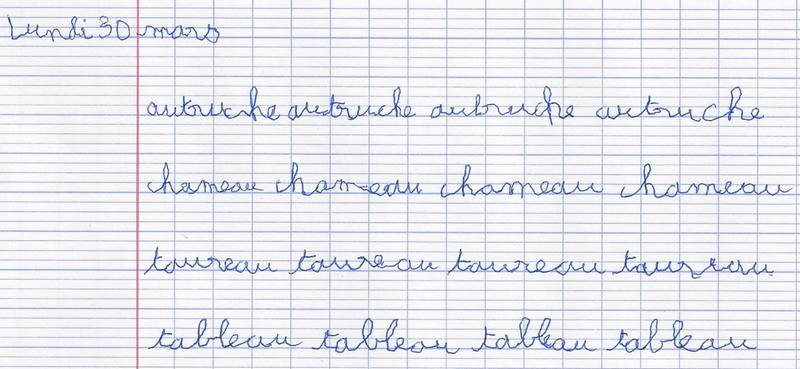 Lundi 30 mars
autruche autruche autruche autruche
chameau chameau chameau chameau
taureau taureau taureau taureau
tableau tableau tableau tableau